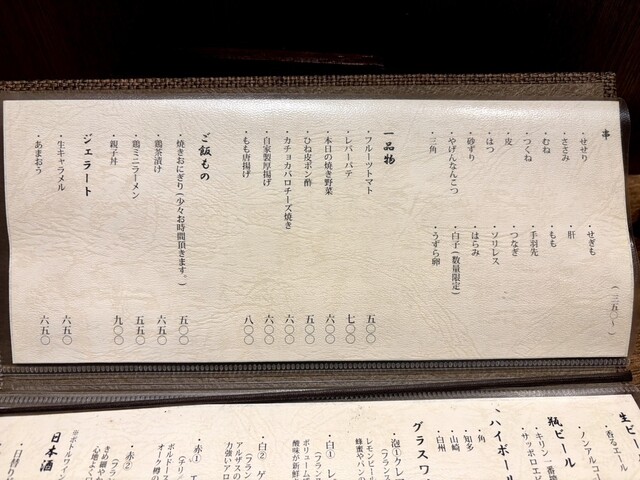 串
(三五〇〜)
・せせり
・ささみ
・むね
・つくね
・皮
・はつ
・砂ずり
・やげんなんこつ
・三角
・せぎも
・肝
・もも
・手羽先
・つなぎ
・ソリレス
・はらみ
・白子(数量限定)
・うずら卵
一品物
・フルーツトマト 五〇〇
・レバーパテ 七〇〇
・本日の焼き野菜 五〇〇
・ひね皮ポン酢 五〇〇
・カチョカバロチーズ焼き 六〇〇
・自家製厚揚げ 六〇〇
・もも唐揚げ 八〇〇
ご飯もの
・焼きおにぎり(少々お時間頂きます。) 五〇〇
・鶏茶漬け 六五〇
・鶏ミニラーメン 五五〇
・親子丼 九〇〇
ジェラート
・生キャラメル 六五〇
・あまおう 六五〇
生ビ
・香るエール
・ノンアルコー
瓶ビール
・キリン一番搾
・サッポロエビ
ハイボール
・角
・知多
・山崎
・白州
グラスワ
・泡①クレマ
(フランス
レモンピール
蜂蜜やパンの
・白①
(フランス
ボリューム
酸味が新鮮
・白②
(フラン
アルザスの
力強いアロ
・赤①
(チリ
ボルドース
オーク樽の
・赤②
(フラン
きめ細や
心地よく
※ボトルワイン
日本酒
・日替り